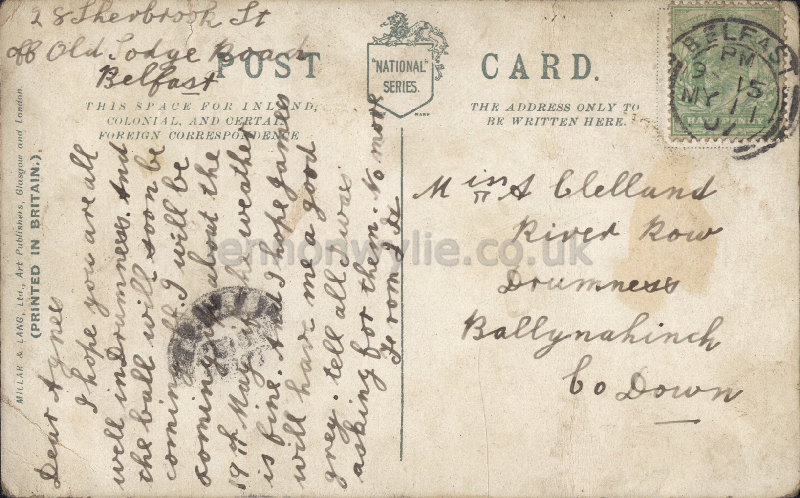 28 Sherbrook St
off Old Lodge Road
Belfast
POST CARD.
"NATIONAL"
SERIES.
THIS SPACE FOR INLAND,
COLONIAL, AND CERTAIN
FOREIGN CORRESPONDENCE
THE ADDRESS ONLY TO
BE WRITTEN HERE.
BELFAST
PM
MY 11
HALFPENNY
MILLAR & LANG, Ltd., Art Publishers, Glasgow and London.
(PRINTED IN BRITAIN.)
Dear Agnes
I hope you are all
well in Drumness. And
the ball will soon be
coming I will be
coming about the
19th May the weather
is fine. And I hope James
will have me a good
grey. tell all I was
asking for them. No more
from
Miss A Clelland
River Row
Drumness
Ballynahinch
Co Down
lennonwylie.co.uk